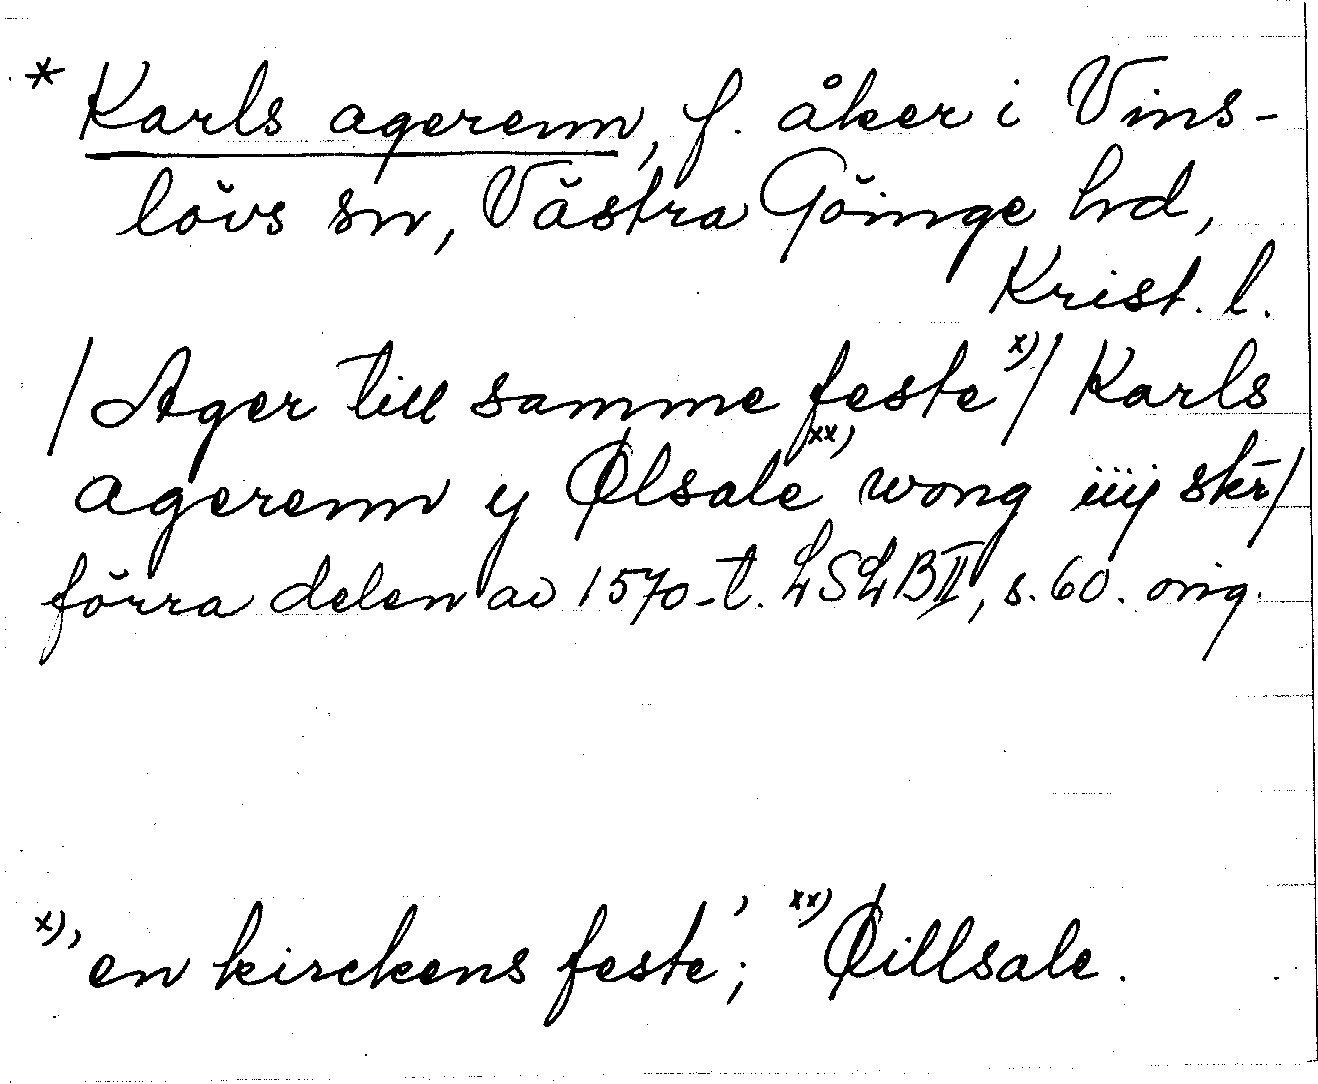 * Karls agerenn, f. åker i Vins-
lövs sn, Västra Göinge hd,
Krist. l.
/Ager till samme feste x)/ Karls
agerenn y Ølsale xx) wong iiij skr/
förra delen av 1570-t. LSLB II, s. 60. orig.
x) 'en kirckens feste'; xx) Øillsale.